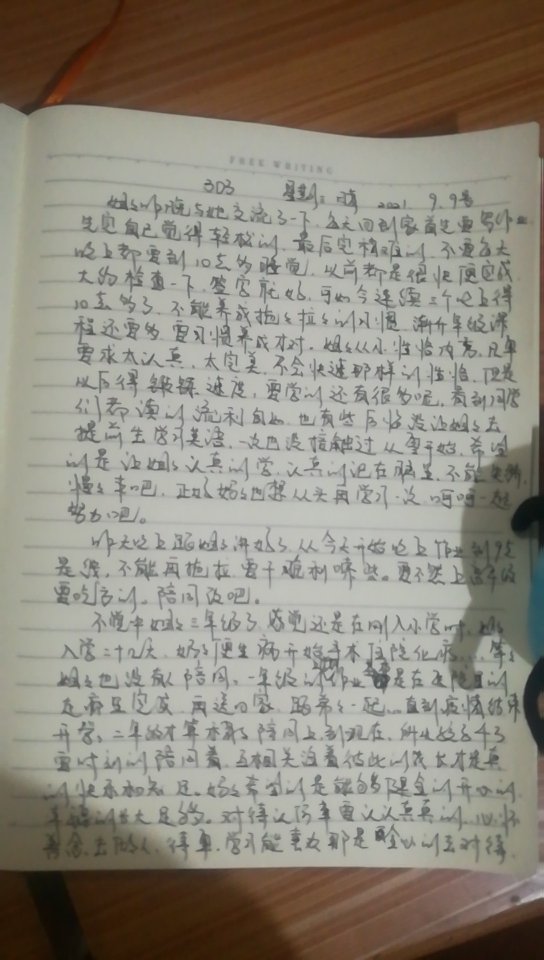 FREE WRITING
303 星期: 晴 2021. 9. 9号
姐姐昨晚与她交流了一下,每天回到家首先要写作业
先完自己觉得轻松的,最后完稍难的,不要每天
晚上都要到10点多睡觉,以前都是很快便完成
大约检查一下,签字就好,于如今连续三个晚上得
10点多了,不能养成拖拖拉拉的习惯,渐升年级课
程还要多,要习惯养成才对。姐姐从小性格内高,凡事
要求太认真,太完美,不会快速那样的性格,但是
以后得锻炼速度,要学的还有很多呢,看到同学
们都读的流利自如,也有些后悔没让姐姐去
提前去学习英语,一次也没接触过从零开始,希望
的是让姐姐认真的学,认真的记在脑里,不能失
慢慢来吧,正好妈妈也想从头再学习一次,呵呵一起
努力吧。
昨天晚上跟姐姐讲好了,从今天开始晚上作业到9点
是,不能再拖拉,要干顺利哪些。要不然上
要吃亏的。陪同改吧。
不觉中姐姐三年级了,感觉还是在刚入小学时,姐姐
入学二十几天,妈妈便生病开始手术住院化疗...等等
姐姐也没有人陪同。一年级的作业是在医院里的
走廊里完成,再送回家,跟弟弟一起...直到疫情结束
开学。二年的才算本着陪同上到现在,所以
要时刻的陪同着,互相关注着彼此的成长才是真
的快乐和知足。妈妈希望的是能够健全的开心的
幸福的长大足够。对待认何事要认认真真的,心怀
善念去做人,待事,学习能